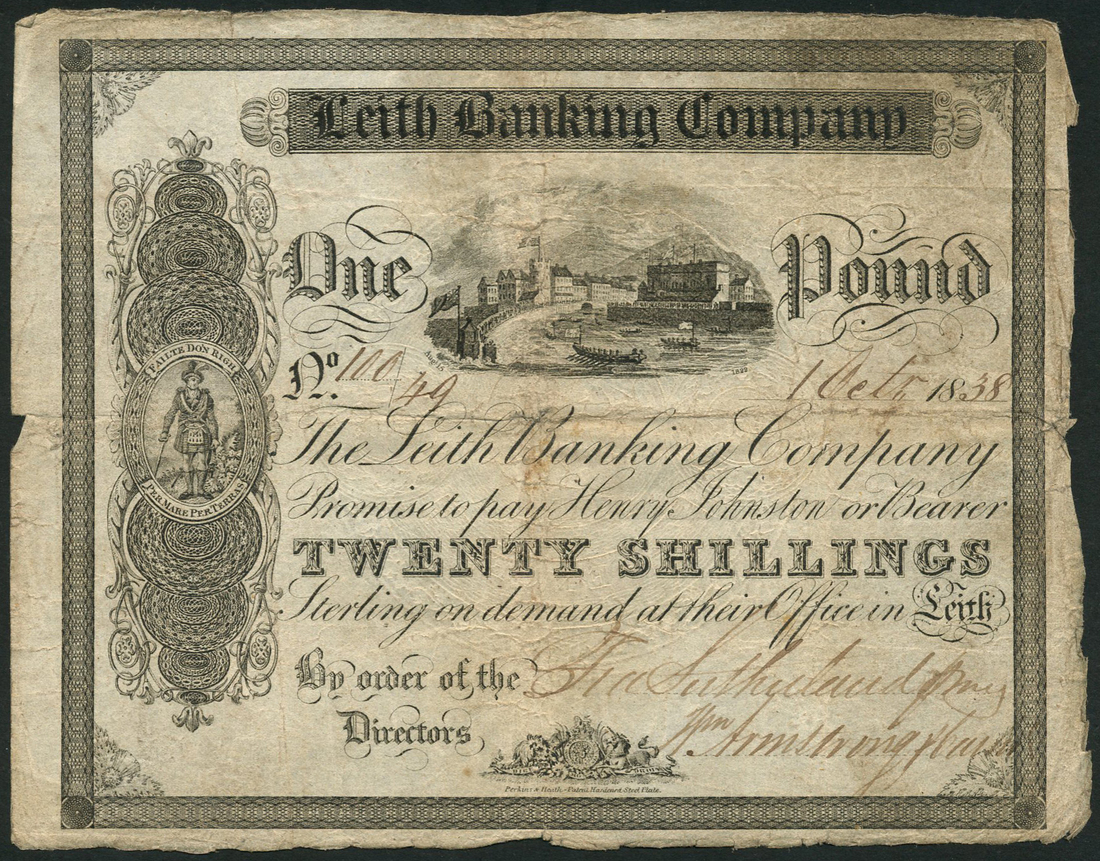 Leith Banking Company
One Pound
FAILTE DON RIGH
PER MARE PER TERRAS
Augt. 15 1822
No. 100/49 1 Octr. 1838
The Leith Banking Company
Promise to pay Henry Johnston or Bearer
TWENTY SHILLINGS
Sterling on demand at their Office in Leith
By order of the
Directors
Wm Armstrong
Perkins & Heath - Patent Hardened Steel Plate.